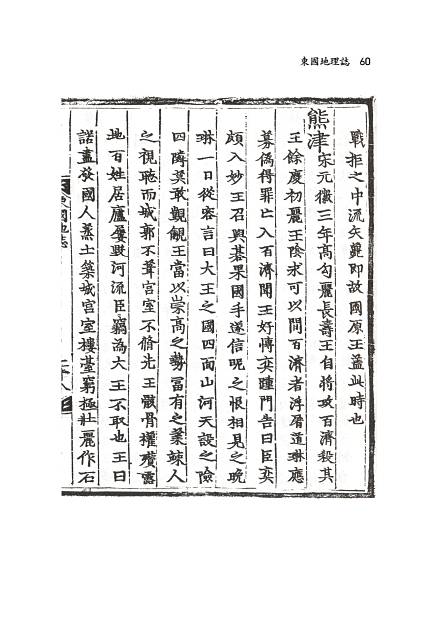 東國地理誌 60
戰拒之中流矢薨即故國原王蓋此時也
熊津宋元徽三年高勾麗長壽王自將攻百濟殺其
王餘慶初麗王陰求可以間百濟者浮屠道琳應
募僞得罪亡入百濟聞王好博奕踵門告曰臣奕
頗入妙王召與碁果國手遂信昵之恨相見之晚
琳一日從容言曰大王之國四面山河天設之險
四隣莫敢觀覦王當以崇高之勢冨有之業竦人
之視聽而城郭不葺宮室不脩先王骸骨權殯露
地百姓居廬屢毀河流臣竊為大王不取也王曰
諾盡發國人蒸土築城宮室樓臺窮極壯麗作石